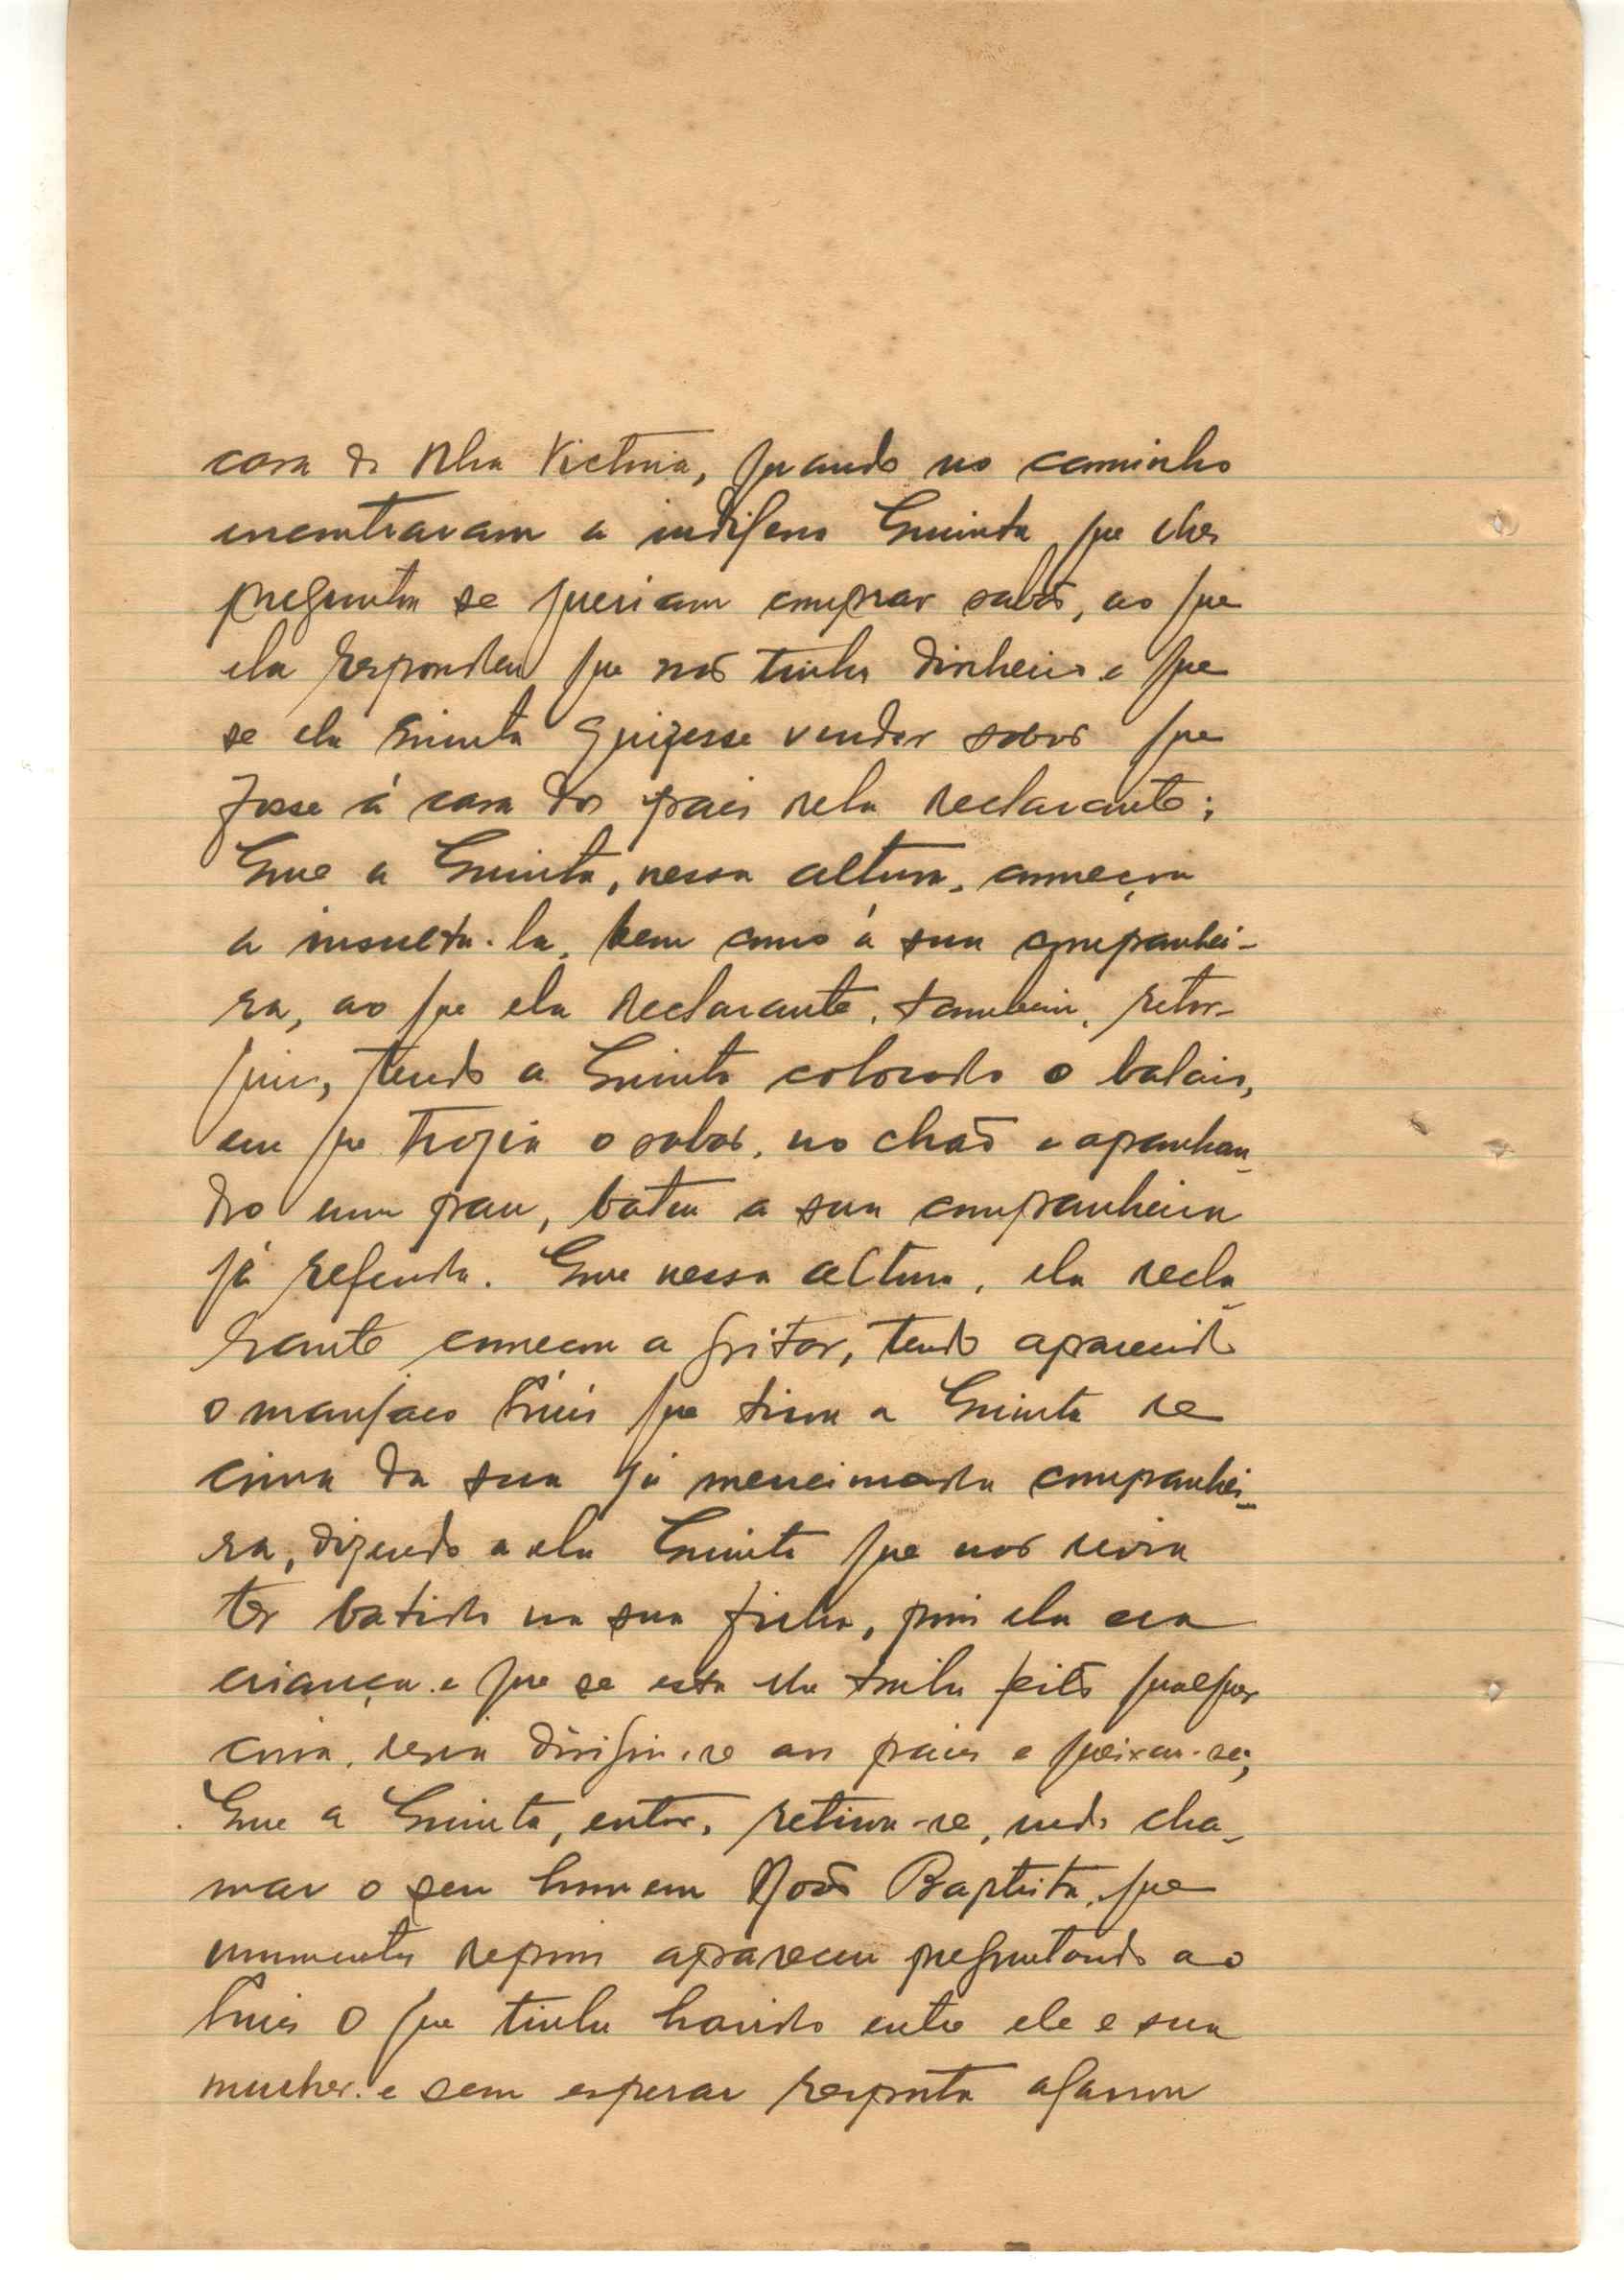 casa de Nha Victoria, quando no caminho
encontraram a indigena Quinta que lhes
preguntou se queriam comprar sabão, ao que
ela respondeu que não tinha dinheiro e que
se ela Quinta quizesse vender sabão que
fosse á casa dos pais dela declarante;
Que a Quinta, nessa altura, começou
a insulta-la, bem como á sua companhei-
ra, ao que ela declarante, tambem, retor-
quiu, tendo a Quinta colocado o balaio,
em que trazia o sabão, no chão e apanhan-
do um pau, bateu a sua companheira
já referida. Que nessa altura, ela decla-
rante começou a gritar, tendo aparecido
o manjaco Luis que tirou a Quinta de
cima da sua já mencionada companhei-
ra, dizendo a ela Quinta que não devia
ter batido na sua filha, pois ela era
criança e que se esta lhe tinha feito qualquer
coisa, devia dirigir-se aos pais e queixar-se;
Que a Quinta, então, retirou-se, indo cha-
mar o seu homem João Baptista, que
momentos depois apareceu preguntando ao
Luis o que tinha havido entre ele e sua
mulher e sem esperar resposta agarrou